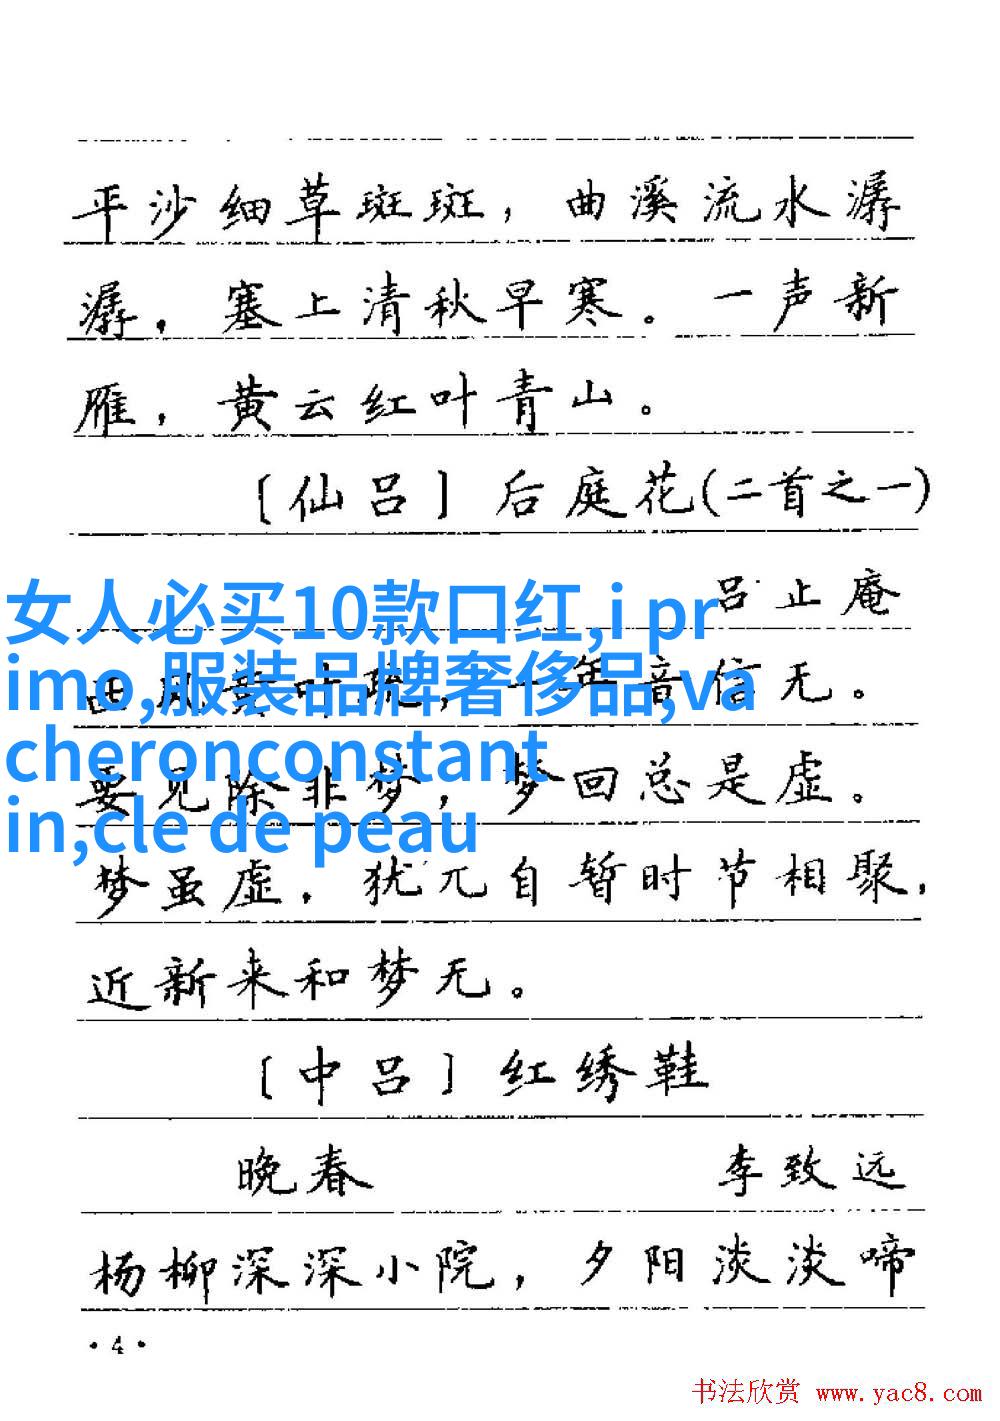 平沙细草斑斑，曲溪流水潺
潺，塞上清秋早寒。一声新
雁，黄云红叶青山。
〔仙吕〕后庭花(二首之一)
吕止庵
女人必买10款口红,i pr
imo,服装品牌奢侈品,va
cheronconstant
in,cle de peau
年音信无。
要见除非梦，梦回总是虚。
梦虽虚，犹兀自暂时节相聚，
近新来和梦无。
〔中吕〕红绣鞋
晚春 李致远
杨柳深深小院，夕阳淡淡啼
·4·
书法欣赏 www.yac8.com